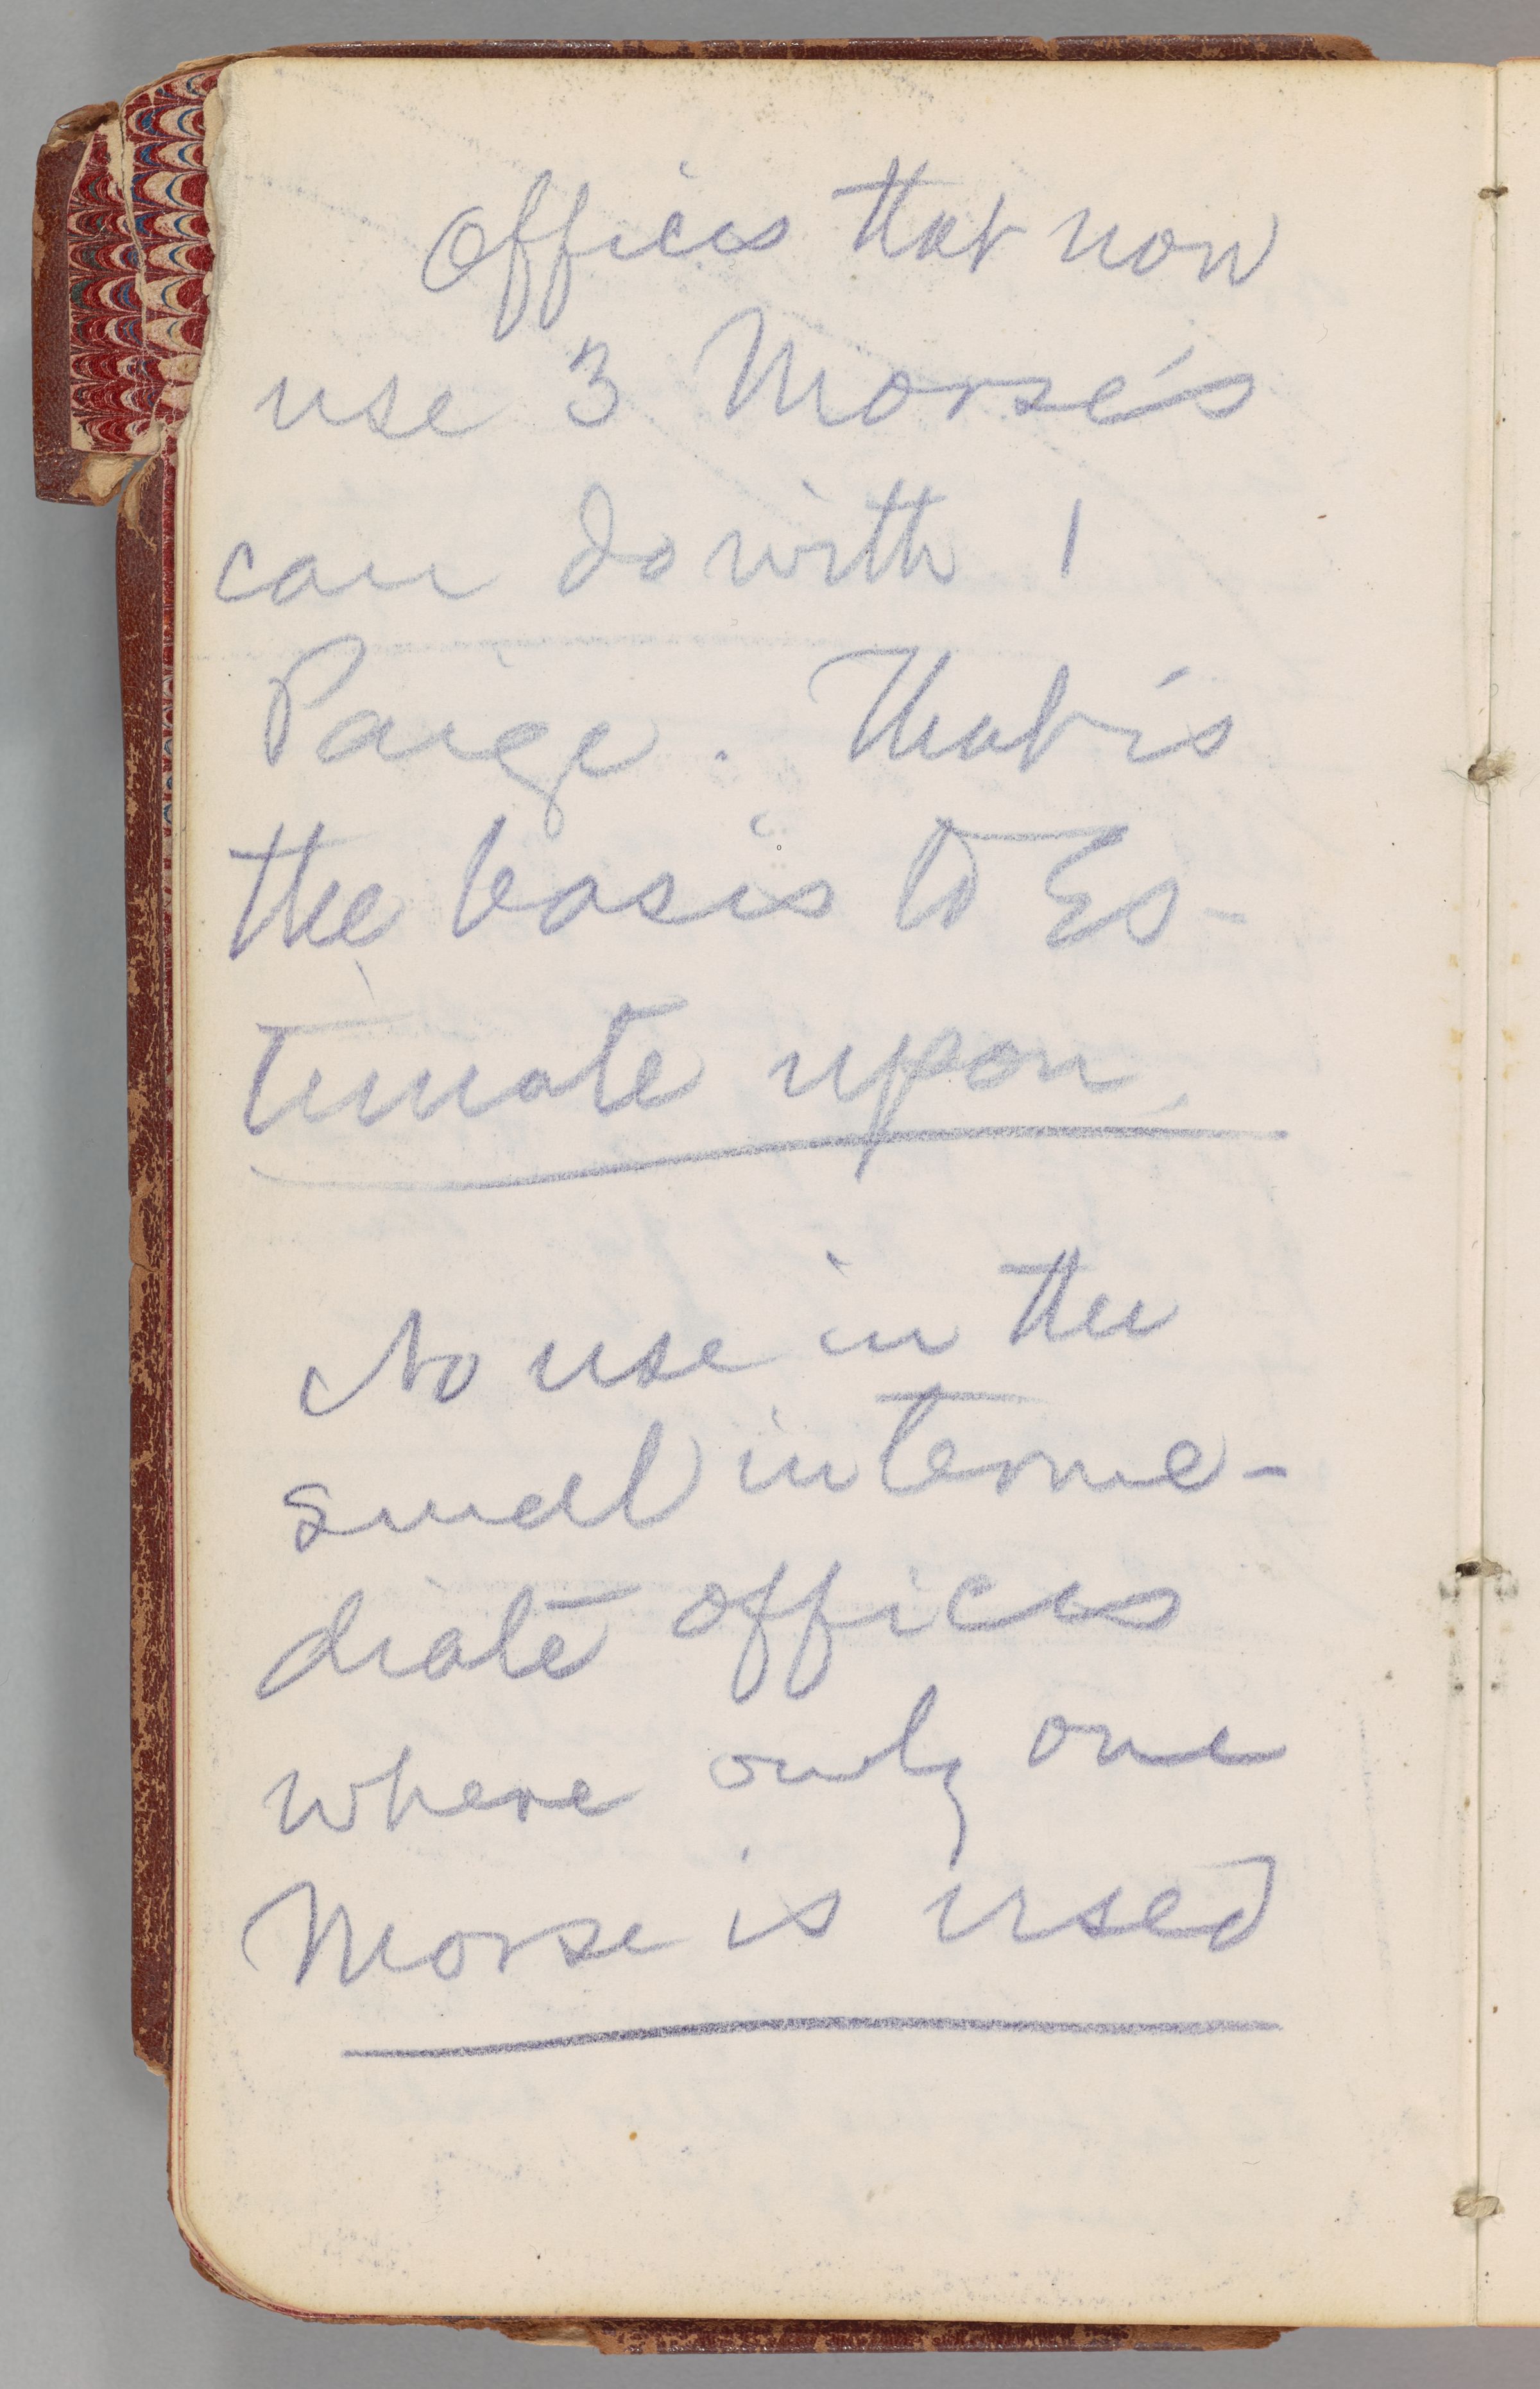 Offices that now
use 3 Morse's
can do with 1
Paige. That is
the basis to es-
timate upon.
No use in the
small interme-
diate offices
where only one
Morse is used